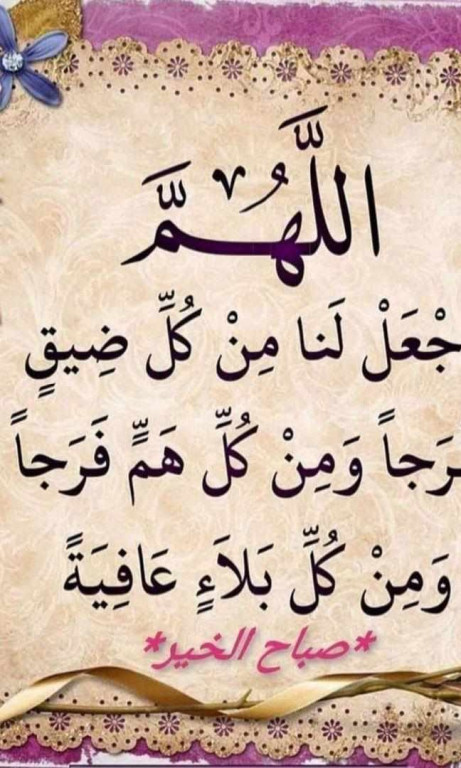 اللَّهُمَّ
جْعَلْ لَنا مِنْ كُلِّ ضِيقٍ
رَجاً وَمِنْ كُلِّ هَمٍّ فَرَجاً
وَمِنْ كُلِّ بَلاَءٍ عَافِيَةً
*صباح الخير*